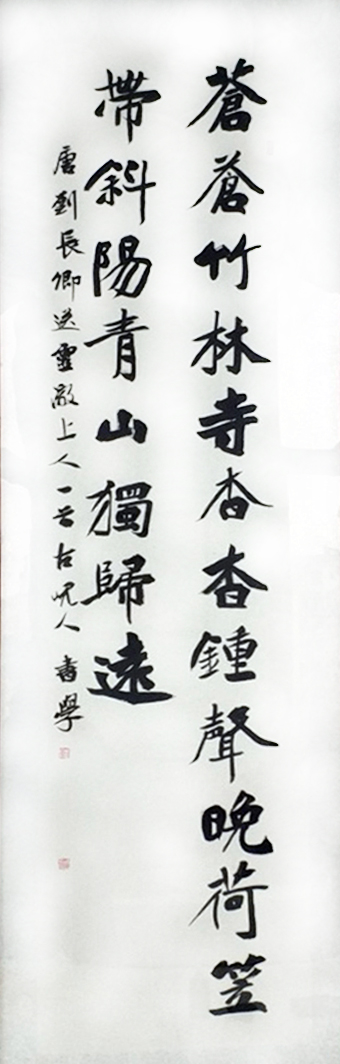 蒼蒼竹林寺杳杳鍾聲晚荷笠
帶斜陽青山獨歸遠
唐劉長卿送靈澈上人一首古㕵人書學